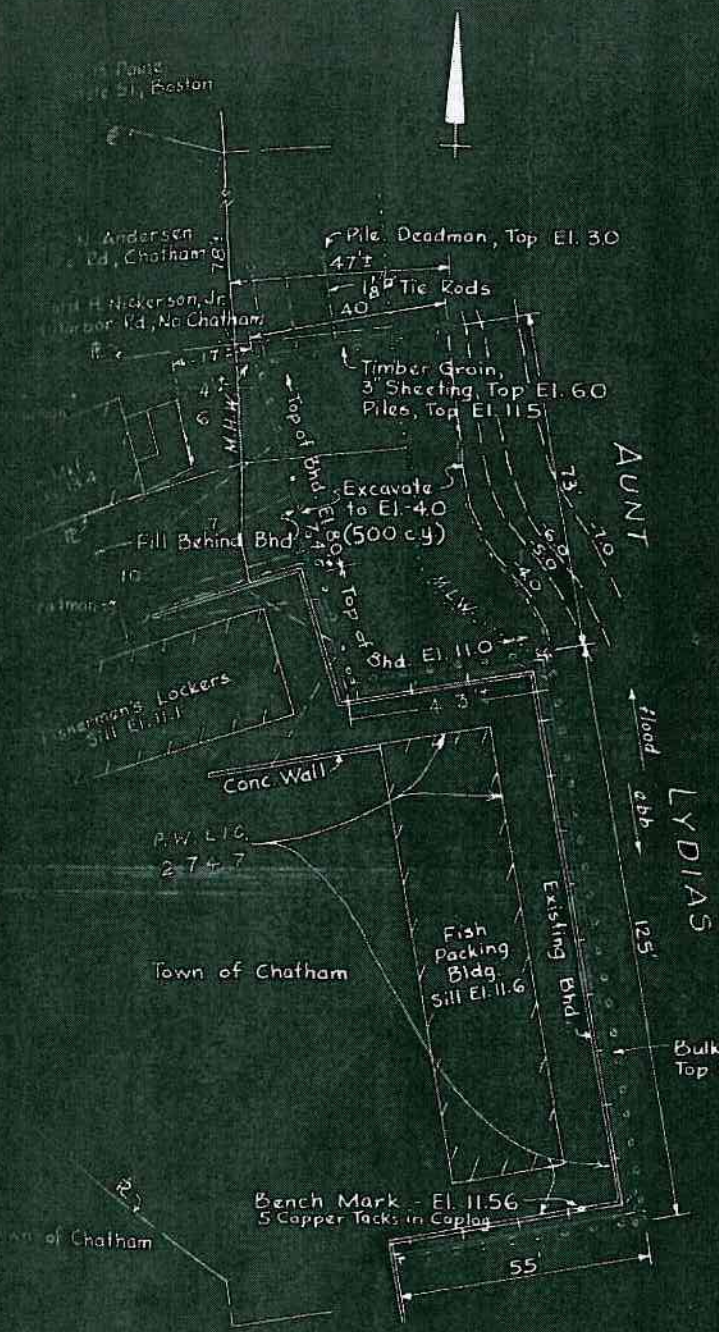 St, Boston
N. Andersen
Rd, Chatham
H. Nickerson, Jr.
Harbor Rd, No Chatham
Pile Deadman, Top El. 3.0
47'±
1⅛"⌀ Tie Rods
40'
78'±
17'±
Timber Groin,
3" Sheeting, Top El. 6.0
Piles, Top El. 11.5
M.H.W.
Top of Bhd. El. 8.0
74'±
Excavate
to El. -4.0
(500 c.y.)
Fill Behind Bhd.
10
M.L.W.
-4.0
-5.0
-6.0
-7.0
73'
AUNT
Top of
Bhd. El. 11.0
43'±
Fisherman's Lockers
Sill El. 11.1
Conc. Wall
flood
ebb
LYDIAS
P.W. LIC.
2747
Town of Chatham
Fish
Packing
Bldg.
Sill El. 11.6
Existing Bhd.
125'
Bulk
Top
Bench Mark - El. 11.56
5 Copper Tacks in Caplog
of Chatham
55'